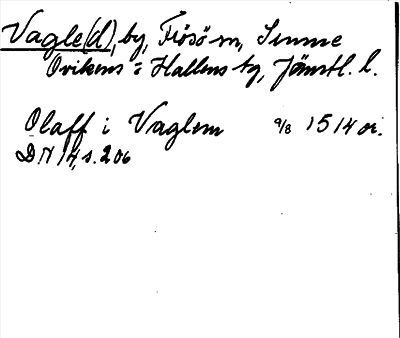 Vagle(d), by, Frösö sn, Sunne
Ovikens o Hallens tg, Jämtl. l.
Olaff i Vaglem 9/8 1514 or.
DN 14, s. 206